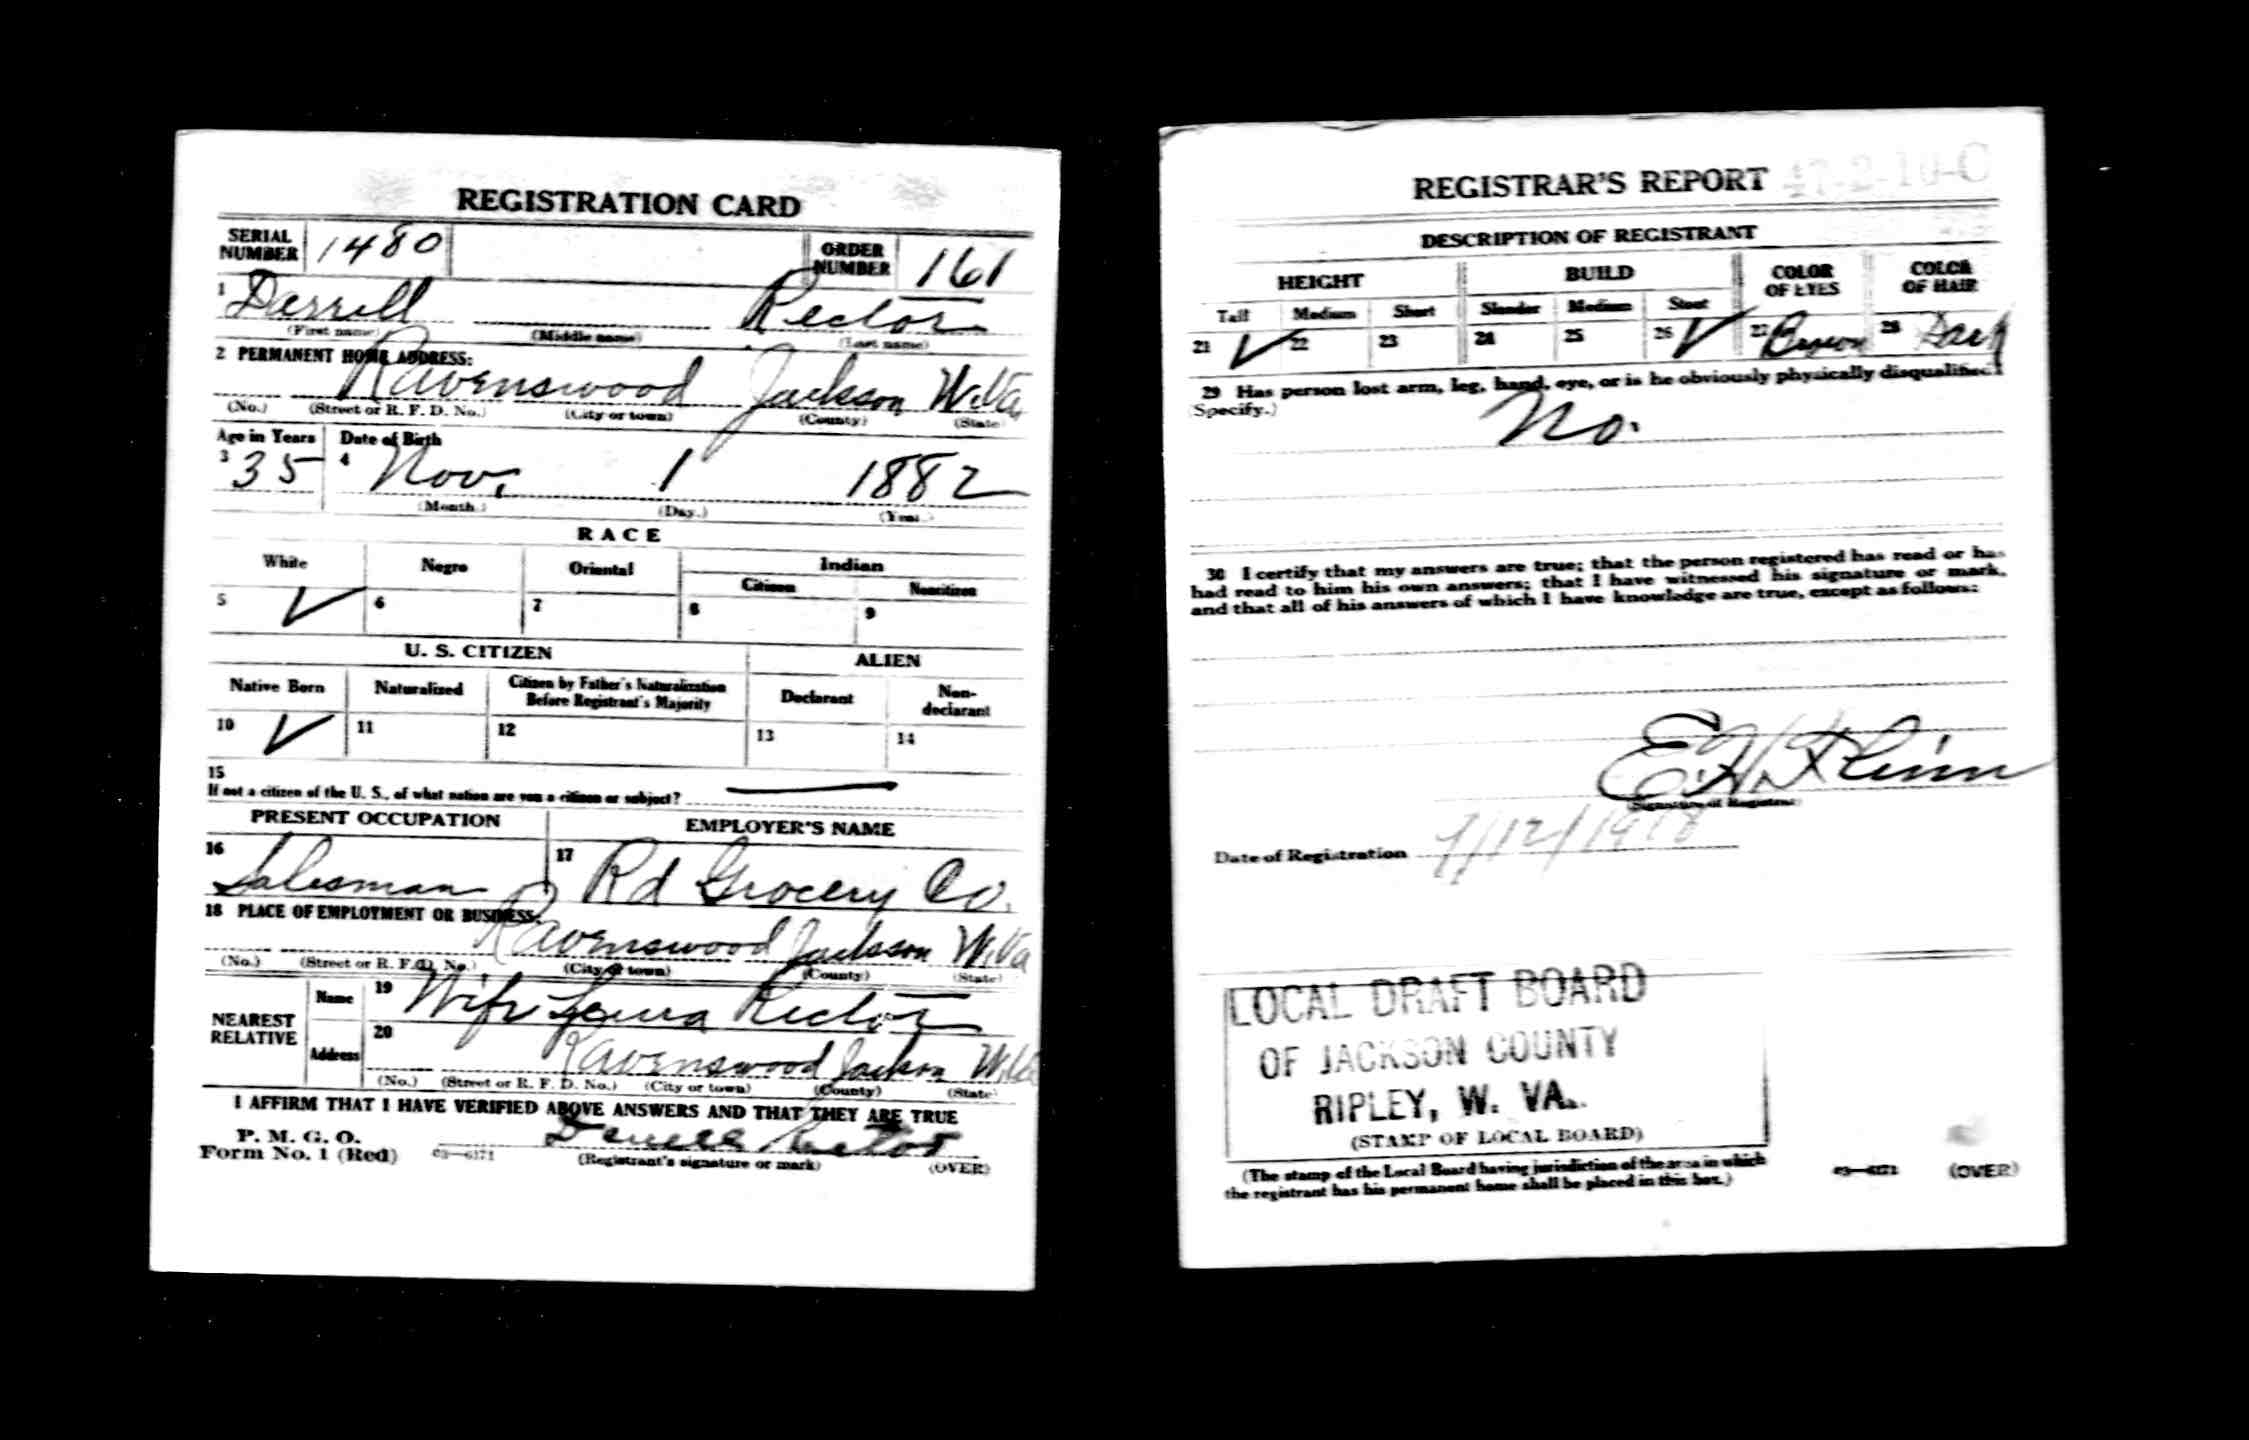 REGISTRATION CARD
SERIAL NUMBER 1480 ORDER NUMBER 161
1 Derrell Rector
(First name) (Middle name) (Last name)
2 PERMANENT HOME ADDRESS:
Ravenswood Jackson W.Va
(No.) (Street or R. F. D. No.) (City or town) (County) (State)
Age in Years Date of Birth
3 35 4 Nov. 1 1882
(Month.) (Day.) (Year.)
RACE
White Negro Oriental Indian
Citizen Noncitizen
5 ✓ 6 7 8 9
U. S. CITIZEN ALIEN
Native Born Naturalized Citizen by Father's Naturalization Before Registrant's Majority Declarant Non-declarant
10 ✓ 11 12 13 14
15
If not a citizen of the U. S., of what nation are you a citizen or subject?
PRESENT OCCUPATION EMPLOYER'S NAME
16 Salesman 17 Rd Grocery Co.
18 PLACE OF EMPLOYMENT OR BUSINESS:
Ravenswood Jackson W.Va
(No.) (Street or R. F. D. No.) (City or town) (County) (State)
NEAREST RELATIVE Name 19 Wife Rector
Address 20 Ravenswood Jackson W.Va
(No.) (Street or R. F. D. No.) (City or town) (County) (State)
I AFFIRM THAT I HAVE VERIFIED ABOVE ANSWERS AND THAT THEY ARE TRUE
P. M. G. O.
Form No. 1 (Red) 03—6171 Derrell Rector
(Registrant's signature or mark) (OVER)
REGISTRAR'S REPORT 47-2-10-C
DESCRIPTION OF REGISTRANT
HEIGHT BUILD COLOR OF EYES COLOR OF HAIR
Tall Medium Short Slender Medium Stout
21 ✓ 22 23 24 25 26 ✓ 27 Brown 28 Dark
29 Has person lost arm, leg, hand, eye, or is he obviously physically disqualified?
(Specify.) No.
30 I certify that my answers are true; that the person registered has read or has
had read to him his own answers; that I have witnessed his signature or mark,
and that all of his answers of which I have knowledge are true, except as follows:
E. H. Flinn
(Signature of Registrar)
Date of Registration 9/12/1918
LOCAL DRAFT BOARD
OF JACKSON COUNTY
RIPLEY, W. VA.
(STAMP OF LOCAL BOARD)
(The stamp of the Local Board having jurisdiction of the area in which
the registrant has his permanent home shall be placed in this box.)
03—6171 (OVER)